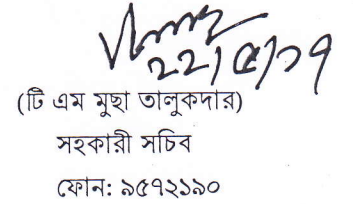 ২২/৫/১৭
(টি এম মুছা তালুকদার)
সহকারী সচিব
ফোন: ৯৫৭২১৯০